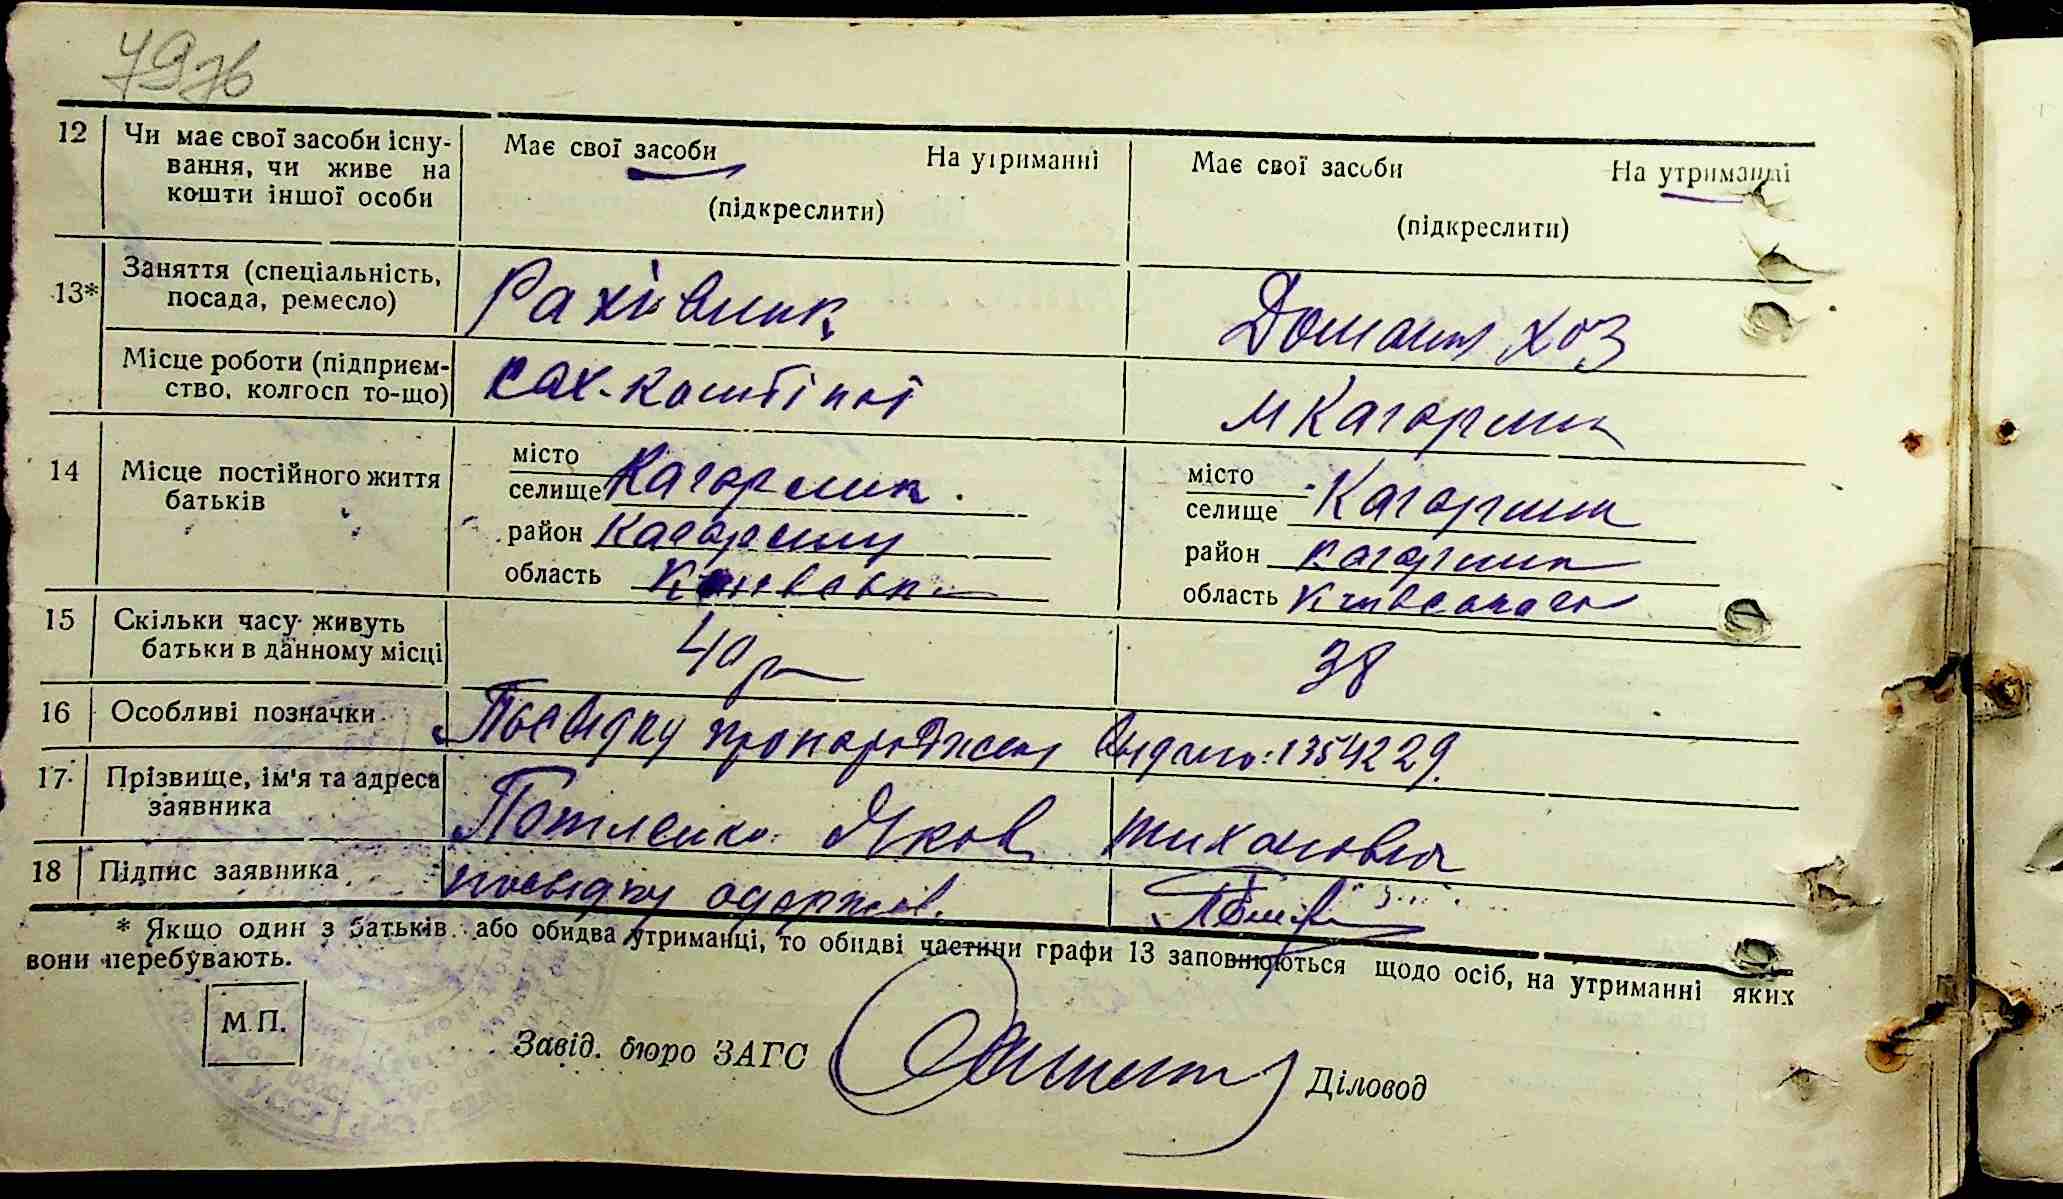 79зв
12 Чи має свої засоби існу-
вання, чи живе на
кошти іншої особи
Має свої засоби На утриманні
(підкреслити)
Має свої засоби На утриманні
(підкреслити)
13* Заняття (спеціальність,
посада, ремесло)
Рахівник
Домашн хоз
Місце роботи (підприєм-
ство, колгосп то-що)
сах-комбінат
м Кагорлик
14 Місце постійного життя
батьків
місто
селище Кагорлик.
район Кагорлику
область
місто
селище Кагорлик
район Кагорлик
область
15 Скільки часу живуть
батьки в данному місці
40 р
38
16 Особливі позначки
Посвідку про народжен видано: 1354229.
17. Прізвище, ім'я та адреса
заявника
Яков Тихонович
18 Підпис заявника
посвідку одержав.
* Якщо один з батьків або обидва утриманці, то обидві частини графи 13 заповнюються щодо осіб, на утриманні яких
вони перебувають.
М.П.
Завід. бюро ЗАГС
Діловод